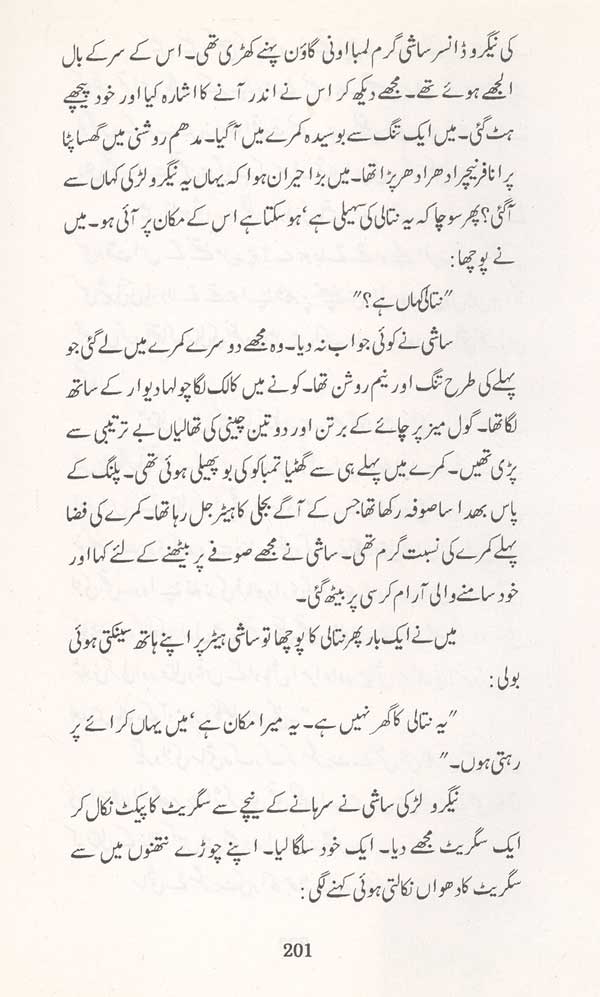 کی نیگرو ڈانسر ساشی گرم لمبا اونی گاؤن پہنے کھڑی تھی۔ اس کے سر کے بال
الجھے ہوئے تھے۔ مجھے دیکھ کر اس نے اندر آنے کا اشارہ کیا اور خود پیچھے
ہٹ گئی۔ میں ایک تنگ سے بوسیدہ کمرے میں آگیا۔ مدھم روشنی میں گھسا پٹا
پرانا فرنیچر ادھر ادھر پڑا تھا۔ میں بڑا حیران ہوا کہ یہاں یہ نیگرو لڑکی کہاں سے
آگئی؟ پھر سوچا کہ یہ نتالی کی سہیلی ہے، ہو سکتا ہے اس کے مکان پر آئی ہو۔ میں
نے پوچھا :
"نتالی کہاں ہے؟"
ساشی نے کوئی جواب نہ دیا۔ وہ مجھے دوسرے کمرے میں لے گئی جو
پہلے کی طرح تنگ اور نیم روشن تھا۔ کونے میں کالک لگا چولہا دیوار کے ساتھ
لگا تھا۔ گول میز پر چائے کے برتن اور دو تین چینی کی تھالیاں بے ترتیبی سے
پڑی تھیں۔ کمرے میں پہلے ہی سے گھٹیا تمباکو کی بو پھیلی ہوئی تھی۔ پلنگ کے
پاس بھدا سا صوفہ رکھا تھا جس کے آگے بجلی کا ہیٹر جل رہا تھا۔ کمرے کی فضا
پہلے کمرے کی نسبت گرم تھی۔ ساشی نے مجھے صوفے پر بیٹھنے کے لئے کہا اور
خود سامنے والی آرام کرسی پر بیٹھ گئی۔
میں نے ایک بار پھر نتالی کا پوچھا تو ساشی ہیٹر پر اپنے ہاتھ سینکتی ہوئی
بولی :
"یہ نتالی کا گھر نہیں ہے۔ یہ میرا مکان ہے، میں یہاں کرائے پر
رہتی ہوں۔"
نیگرو لڑکی ساشی نے سرہانے کے نیچے سے سگریٹ کا پیکٹ نکال کر
ایک سگریٹ مجھے دیا۔ ایک خود سلگا لیا۔ اپنے چوڑے نتھنوں میں سے
سگریٹ کا دھواں نکالتی ہوئی کہنے لگی :
201